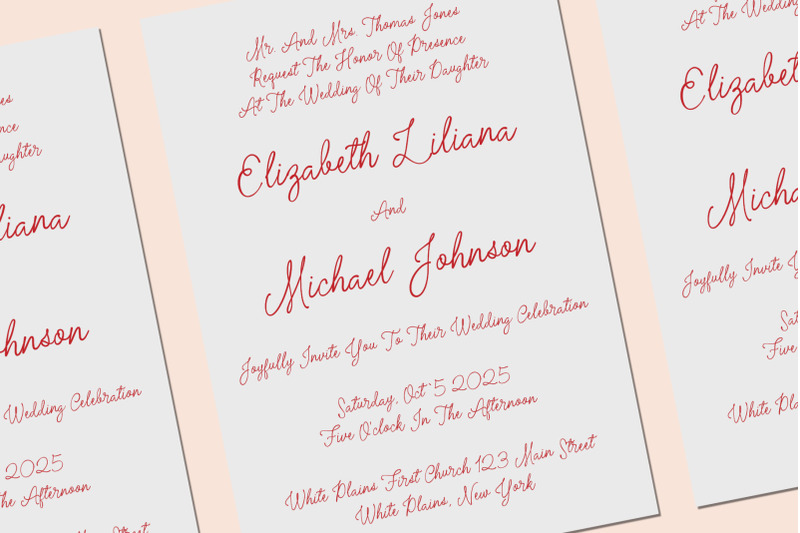 nes
nce
ughter
liana
hnson
Wedding Celebration
2025
he Afternoon
Street
Mr. And Mrs. Thomas Jones
Request The Honor Of Presence
At The Wedding Of Their Daughter
Elizabeth Liliana
And
Michael Johnson
Joyfully Invite You To Their Wedding Celebration
Saturday, Oct '5 2025
Five O'clock In The Afternoon
White Plains First Church 123 Main Street
White Plains, New York
At The Wedding
Elizabet
Micha
Joyfully Invite Y
Sa
Five
White Pla